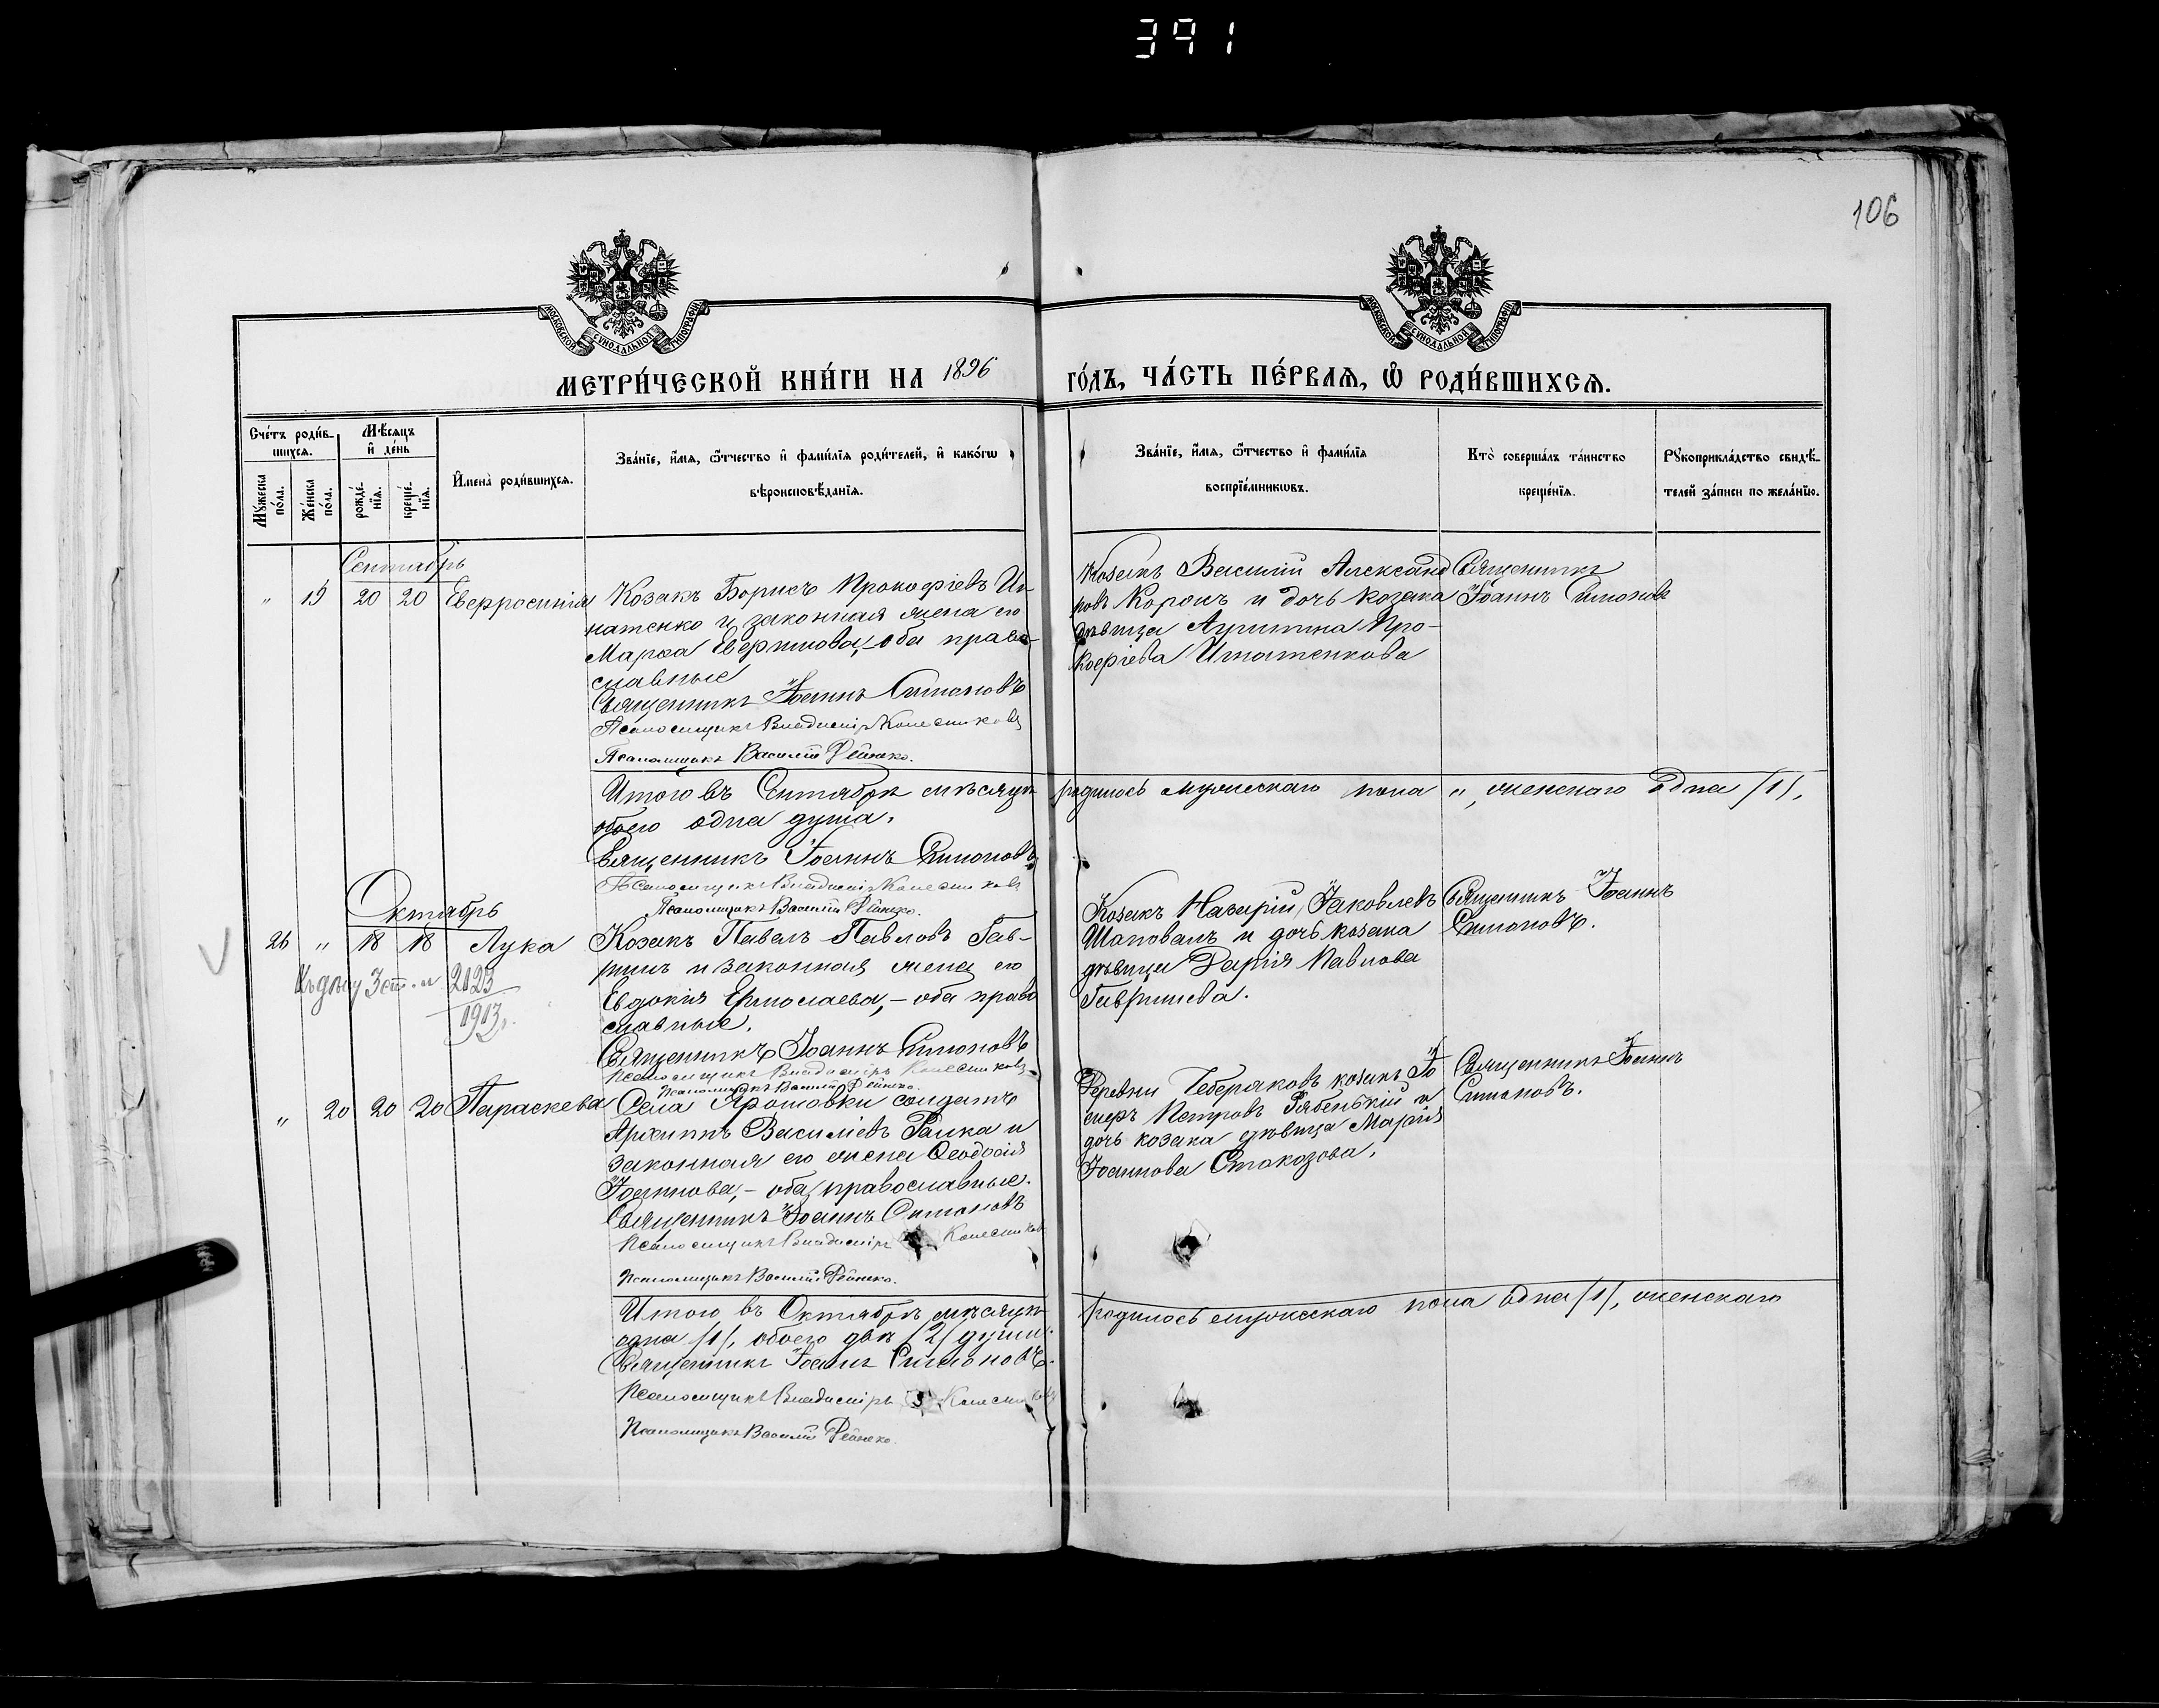 391
106
МОСКОВСКОЙ СѴНОДАЛЬНОЙ ТИПОГРАФІИ
МОСКОВСКОЙ СѴНОДАЛЬНОЙ ТИПОГРАФІИ
МЕТРИ́ЧЕСКОЙ КНИ́ГИ НА 1896 ГО́ДЪ, ЧА́СТЬ ПЕ́РВАЯ, Ѽ РОДИ́ВШИХСЯ.
Сче́тъ роди́в-
шихся.
Мꙋ́жеска по́ла.
Же́нска по́ла.
Мѣ́сяцъ и҆ де́нь
рожде́-нїя.
креще́-нїя.
И҆мена̀ роди́вшихся.
Зва́нїе, и҆́мя, ѻ҆́тчество и҆ фами́лїя роди́телей, и҆ како́гѡ
вѣроисповѣ́данїя.
Зва́нїе, и҆́мя, ѻ҆́тчество и҆ фами́лїя
воспрїе́мникѡвъ.
Кто̀ соверша́лъ та́инство
креще́нїя.
Рꙋкоприкла́дство свидѣ́-
телей за́писи по жела́нїю.
Сентябрь
" 19 20 20 Евфросинія
Козакъ Борисъ Прокофіевъ Иг
натенко и законная жена его
Марфа Ефимова, - оба право-
славные
Священникъ Іоаннъ Симоновъ
Псаломщикъ Владиміръ Колесниковъ
Псаломщикъ Василій Дейнеко.
Козакъ Василій Александ
ровъ Коронь и дочь козака
дѣвица Агрипина Про-
кофіева Игнатенкова
Священникъ
Іоаннъ Симоновъ
Итого въ Сентябрѣ мѣсяцѣ родилось мужескаго пола ", женскаго одна /1/,
обоего одна душа.
Священникъ Іоаннъ Симоновъ
Псаломщикъ Владиміръ Колесниковъ
Псаломщикъ Василій Дейнеко.
Октябрь
26 " 18 18 Лука
Къ дѣлу 3 ст. 2123
1913
Козакъ Павелъ Павловъ Гав-
ришъ и законная жена его
Евдокія Ермолаева, - оба право
славные.
Священникъ Іоаннъ Симоновъ
Псаломщикъ Владиміръ Колесниковъ
Псаломщикъ Василій Дейнеко.
Козакъ Назарій Іаковлевъ
Шаповалъ и дочь козака
дѣвица Дарія Павлова
Гавришева.
Священникъ Іоаннъ
Симоновъ.
" 20 20 20 Параскева
Села Ярошовки солдатъ
Архиппъ Василіевъ Галка и
законная его жена Ѳеодосія
Іоаннова, - оба православные.
Священникъ Іоаннъ Симоновъ
Псаломщикъ Владиміръ Колесниковъ
Псаломщикъ Василій Дейнеко.
Деревни Чеберяковъ козакъ Іо
сифъ Петровъ Рябенькій и
дочь козака дѣвица Марія
Іоаннова Стокозова.
Священникъ Іоаннъ
Симоновъ.
Итого въ Октябрѣ мѣсяцѣ родилось мужескаго пола одна /1/, женскаго
одна /1/, обоего двѣ /2/ души.
Священникъ Іоаннъ Симоновъ.
Псаломщикъ Владиміръ Колесниковъ
Псаломщикъ Василій Дейнеко.